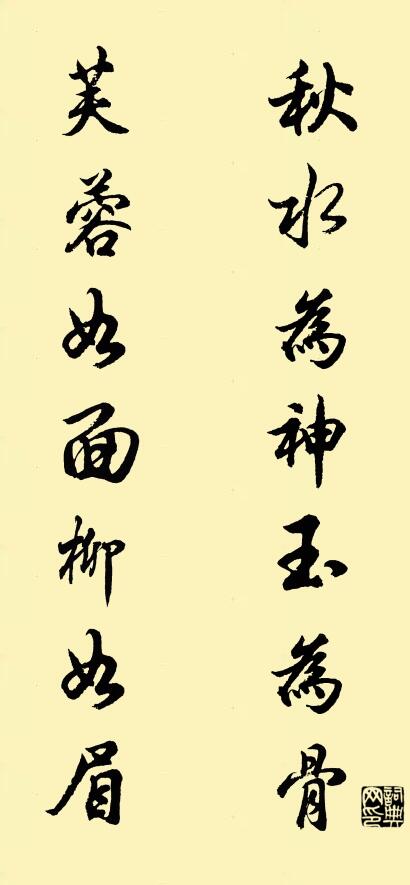 秋水為神玉為骨
芙蓉如面柳如眉
詞典網印